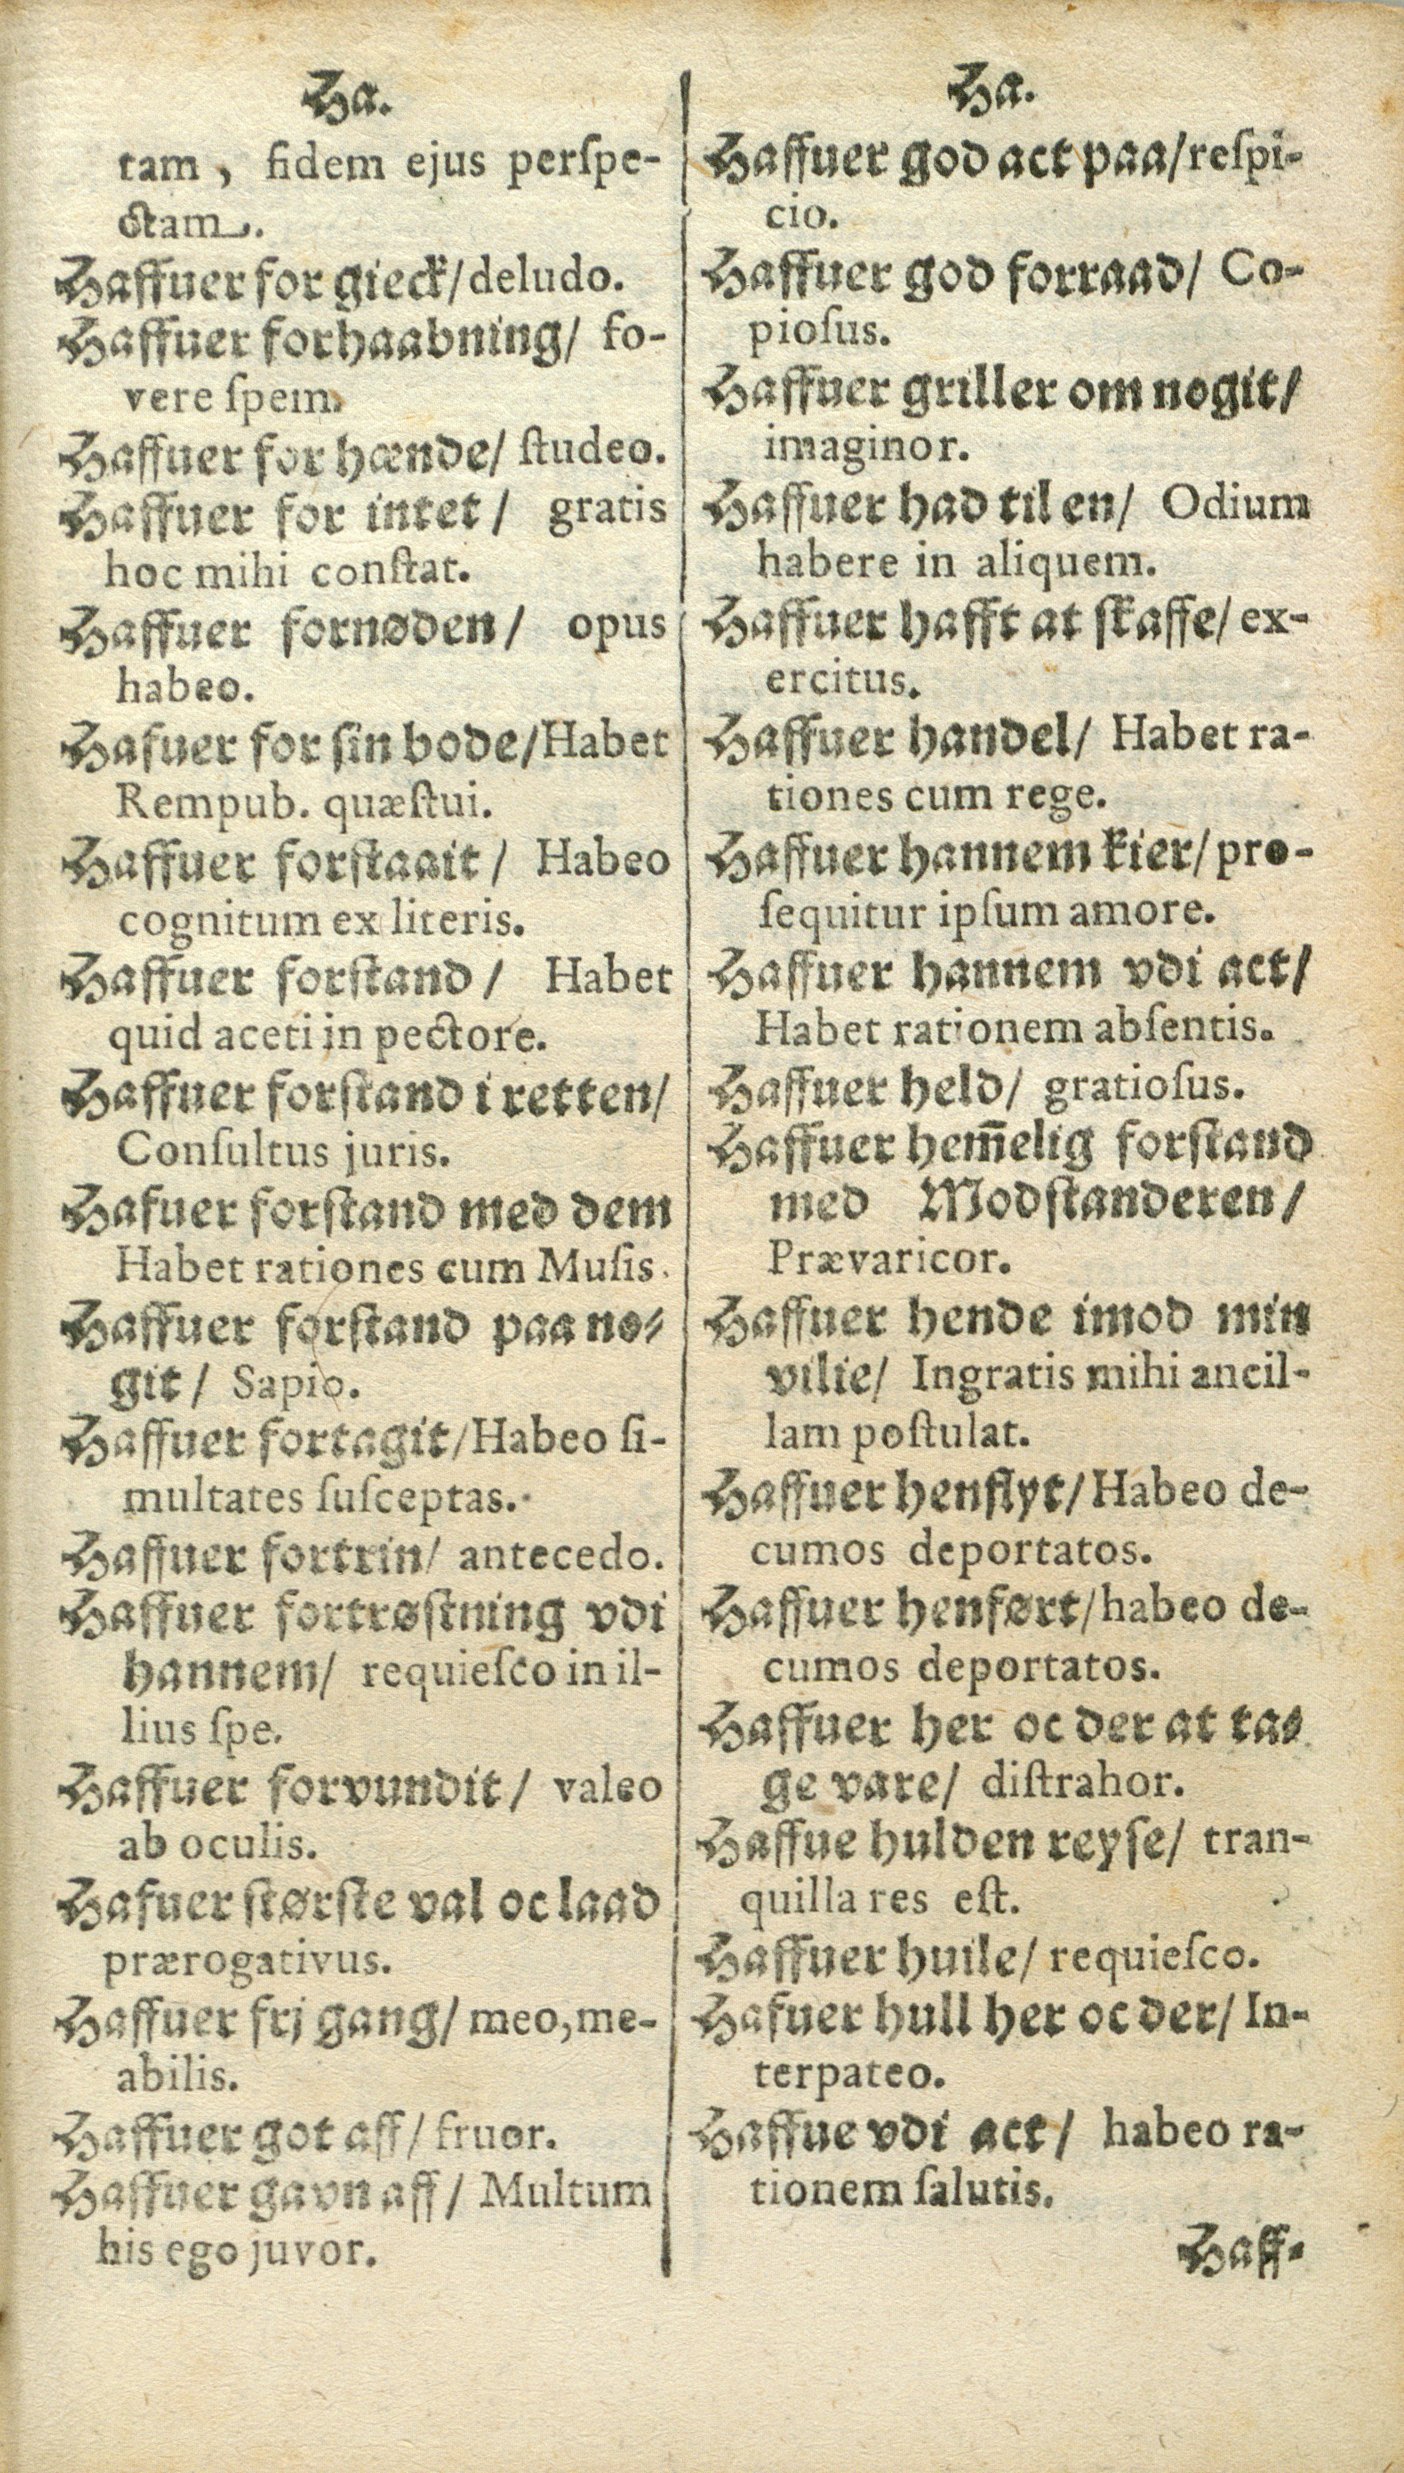 Ha.
tam, fidem ejus perſpe-
ctam.
Haffuer for gieck/ deludo.
Haffuer forhaabning/ fo-
vere ſpem.
Haffuer for hænde/ ſtudeo.
Haffuer for intet/ gratis
hoc mihi conſtat.
Haffuer fornøden/ opus
habeo.
Hafuer for ſin bode/ Habet
Rempub. quæſtui.
Haffuer forſtaait/ Habeo
cognitum ex literis.
Haffuer forſtand/ Habet
quid aceti in pectore.
Haffuer forſtand i retten/
Conſultus juris.
Hafuer forſtand med dem
Habet rationes cum Muſis.
Haffuer forſtand paa no-
git/ Sapio.
Haffuer fortagit/ Habeo ſi-
multates ſuſceptas.
Haffuer fortrin/ antecedo.
Haffuer fortrøſtning vdi
hannem/ requieſco in il-
lius ſpe.
Haffuer forvundit/ valeo
ab oculis.
Hafuer ſtørſte val oc laad
prærogativus.
Haffuer frj gang/ meo, me-
abilis.
Haffuer got aff/ fruor.
Haffuer gavn aff/ Multum
his ego juvor.
Ha.
Haffuer god act paa/ reſpi-
cio.
Haffuer god forraad/ Co-
pioſus.
Haffuer griller om nogit/
imaginor.
Haffuer had til en/ Odium
habere in aliquem.
Haffuer hafft at ſkaffe/ ex-
ercitus.
Haffuer handel/ Habet ra-
tiones cum rege.
Haffuer hannem kier/ pro-
ſequitur ipſum amore.
Haffuer hannem vdi act/
Habet rationem abſentis.
Haffuer held/ gratioſus.
Haffuer hem̃elig forſtand
med Modſtanderen/
Prævaricor.
Haffuer hende imod min
vilie/ Ingratis mihi ancil-
lam poſtulat.
Haffuer henflyt/ Habeo de-
cumos deportatos.
Haffuer henført/ habeo de-
cumos deportatos.
Haffuer her oc der at ta-
ge vare/ diſtrahor.
Haffue hulden reyſe/ tran-
quilla res eſt.
Haffuer huile/ requieſco.
Hafuer hull her oc der/ In-
terpateo.
Haffue vdi act/ habeo ra-
tionem ſalutis.
Haff-